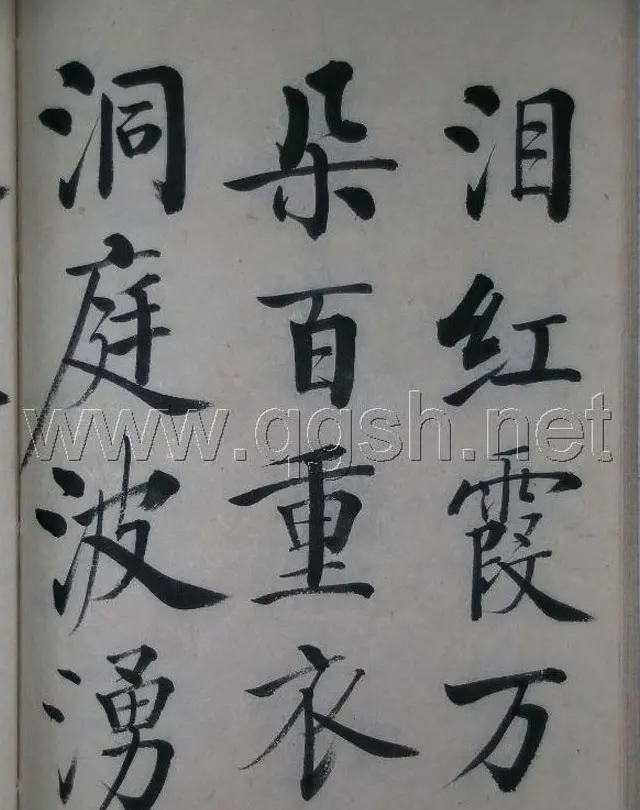 泪红霞万
朵百重衣
洞庭波湧
www.qgsh.net